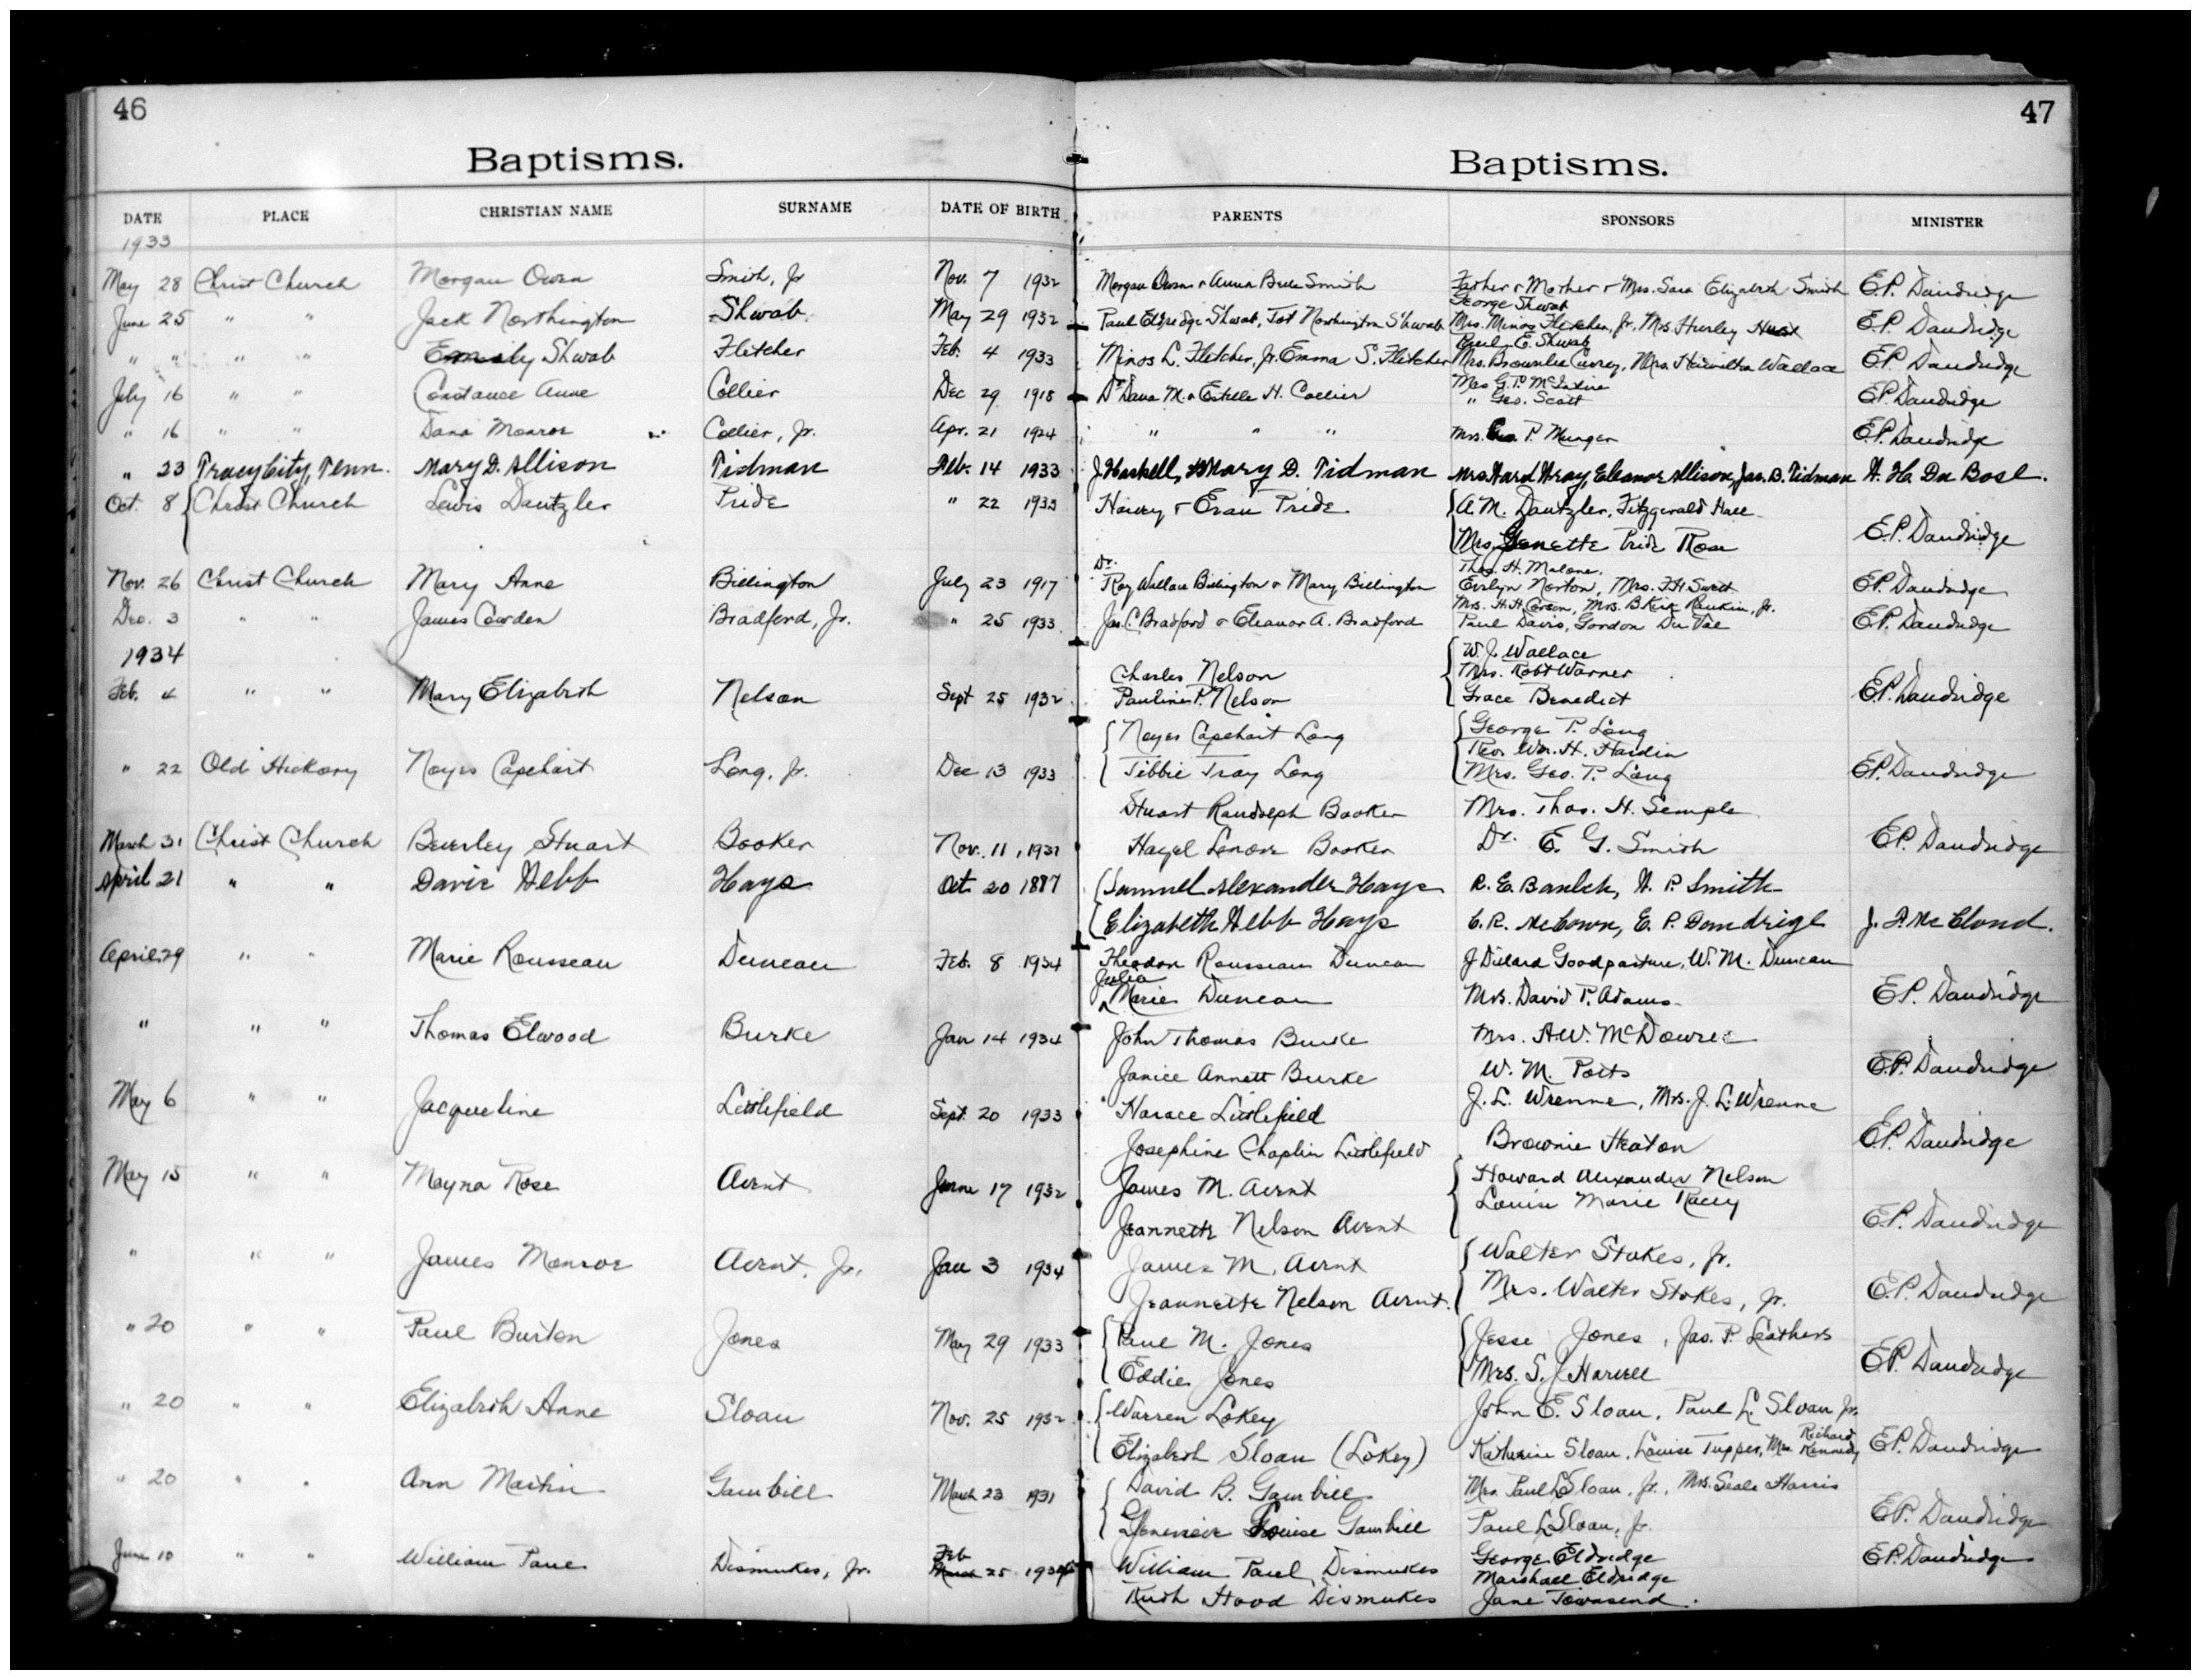 46
47
Baptisms.
Baptisms.
DATE PLACE CHRISTIAN NAME SURNAME DATE OF BIRTH PARENTS SPONSORS MINISTER
1933
May 28 Christ Church Morgan Owen Smith, Jr Nov. 7 1932 Morgan Owen & Anna Smith Father & Mother & Mrs. Sara Elizabeth Smith E.P. Dandridge
George Shwab
June 25 " " Jack Northington Shwab May 29 1932 Paul Eldredge Shwab, Tot Northington Shwab Mrs. Minos Fletcher, Jr, Mrs Hurley E.P. Dandridge
Paul E. Shwab
" " " " Emily Shwab Fletcher Feb. 4 1933 Minos L. Fletcher, Jr, Emma S. Fletcher Mrs. Brownlee Currey, Mrs. Hamilton Wallace E.P. Dandridge
Mrs G.P. McIntire
July 16 " " Constance Anne Collier Dec 29 1918 Dr Dana M. & Estelle H. Collier " Geo. Scott E.P. Dandridge
" 16 " " Dana Monroe Collier, Jr. Apr. 21 1924 " " " Mrs. Geo. P. Munger E.P. Dandridge
" 23 Tracy City, Tenn. Mary D. Allison Tidman Feb. 14 1933 J Haskell, Mary D. Tidman Mrs Ward Wray, Eleanor Allison, Jas. B. Tidman W. H. Du Bose.
Oct. 8 Christ Church Lewis Dantzler Pride " 22 1933 Harvey & Evan Pride A. M. Dantzler, Fitzgerald Hall
Mrs. Genette Pride Rose E.P. Dandridge
Dr. Thos. H. Malone,
Nov. 26 Christ Church Mary Anne Billington July 23 1917 Ray Wallace Billington & Mary Billington Evelyn Norton, Mrs. E.P. Dandridge
Mrs. H. H. Corson, Mrs. B Kirk Rankin, Jr.
Dec. 3 " " James Cowden Bradford, Jr. " 25 1933 Jas. C. Bradford & Eleanor A. Bradford Paul Davis, Gordon E.P. Dandridge
1934 W. J. Wallace
Charles Nelson Mrs. Robt Warner
Feb. 4 " " Mary Elizabeth Nelson Sept 25 1932 Pauline P. Nelson Grace Benedict E.P. Dandridge
Noyes Capehart Long George P. Long
Rev. Wm. H. Hardin
" 22 Old Hickory Noyes Capehart Long, Jr. Dec 13 1933 Tibbie Tray Long Mrs. Geo. P. Long E.P. Dandridge
Stuart Randolph Booker Mrs. Thos. H. Semple
March 31 Christ Church Beverley Stuart Booker Nov. 11, 1931 Hazel Lenore Booker Dr. E. G. Smith E.P. Dandridge
April 21 " " Davie Webb Hays Oct. 20 1887 Samuel Alexander Hays R. E. W. P. Smith
Elizabeth Webb Hays C. R. McCown, E. P. Dandridge J. F. McCloud.
April 29 " " Marie Rousseau Duncan Feb. 8 1934 Theodore Rousseau Duncan J Dillard Goodpasture, W. M. Duncan
Julia
Marie Duncan Mrs. David P. Adams E.P. Dandridge
" " " Thomas Elwood Burke Jan 14 1934 John Thomas Burke Mrs. A.W. McDowell
Janice Annett Burke W. M. Potts E.P. Dandridge
May 6 " " Jacqueline Littlefield Sept. 20 1933 Horace Littlefield J. L. Wrenne, Mrs. J. L. Wrenne
Josephine Chaplin Littlefield Brownie Heaton E.P. Dandridge
May 15 " " Mayna Rose Avent June 17 1932 James M. Avent Howard Alexander Nelson
Louise Marie Racey
Jeannette Nelson Avent E.P. Dandridge
" " " James Monroe Avent, Jr. Jan 3 1934 James M. Avent Walter Stokes, Jr.
Jeannette Nelson Avent. Mrs. Walter Stokes, Jr. E.P. Dandridge
" 20 " " Paul Burton Jones May 29 1933 Paul M. Jones Jesse Jones, Jas. P. Leathers
Eddie Jones Mrs. S. J. Harvell E.P. Dandridge
" 20 " " Elizabeth Anne Sloan Nov. 25 1932 Warren Lokey John E. Sloan, Paul L. Sloan Jr.
Richard
Elizabeth Sloan (Lokey) Katherine Sloan, Louise Tupper, Mrs. Kennedy E.P. Dandridge
" 20 " " Ann Martin Gambill March 23 1931 David B. Gambill Mrs. Paul L Sloan, Jr., Mrs. Seale Harris
Genevieve Louise Gambill Paul L Sloan, Jr. E.P. Dandridge
Feb
June 10 " " William Paul Dismukes, Jr. March 25 1934 William Paul Dismukes George Eldredge E.P. Dandridge
Marshall Eldridge
Ruth Hood Dismukes Jane Townsend.